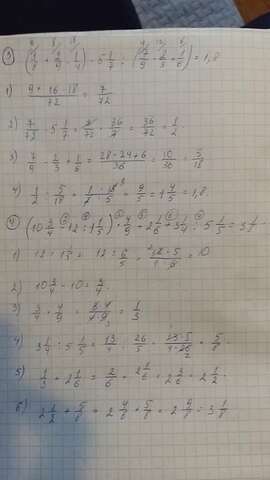 ③ (1/8 + 2/9 - 1/4) · 5 1/7 : (7/9 - 2/3 + 1/6) = 1,8
1) (9 + 16 - 18)/72 = 7/72
2) 7/72 · 5 1/7 = 7/72 · 36/7 = 36/72 = 1/2
3) 7/9 - 2/3 + 1/6 = (28 - 24 + 6)/36 = 10/36 = 5/18
4) 1/2 : 5/18 = 9/5 = 1 4/5 = 1,8.
④ (10 3/4 - 12 : 1 1/5) · 4/9 + 2 1/6 + 3 1/4 : 5 1/5 = 3 1
1) 12 : 1 1/5 = 12 : 6/5 = 10
2) 10 3/4 - 10 = 3/4.
3) 3/4 · 4/9 = 3·4/4·9 = 1/3
4) 3 1/4 : 5 1/5 = 13/4 : 26/5 = 13·5/4·26 = 5/8.
5) 1/3 + 2 1/6 = 2/6 + 2 1/6 = 2 3/6 = 2 1/2.
6) 2 1/2 + 5/8 = 2 4/8 + 5/8 = 2 9/8 = 3 1/8